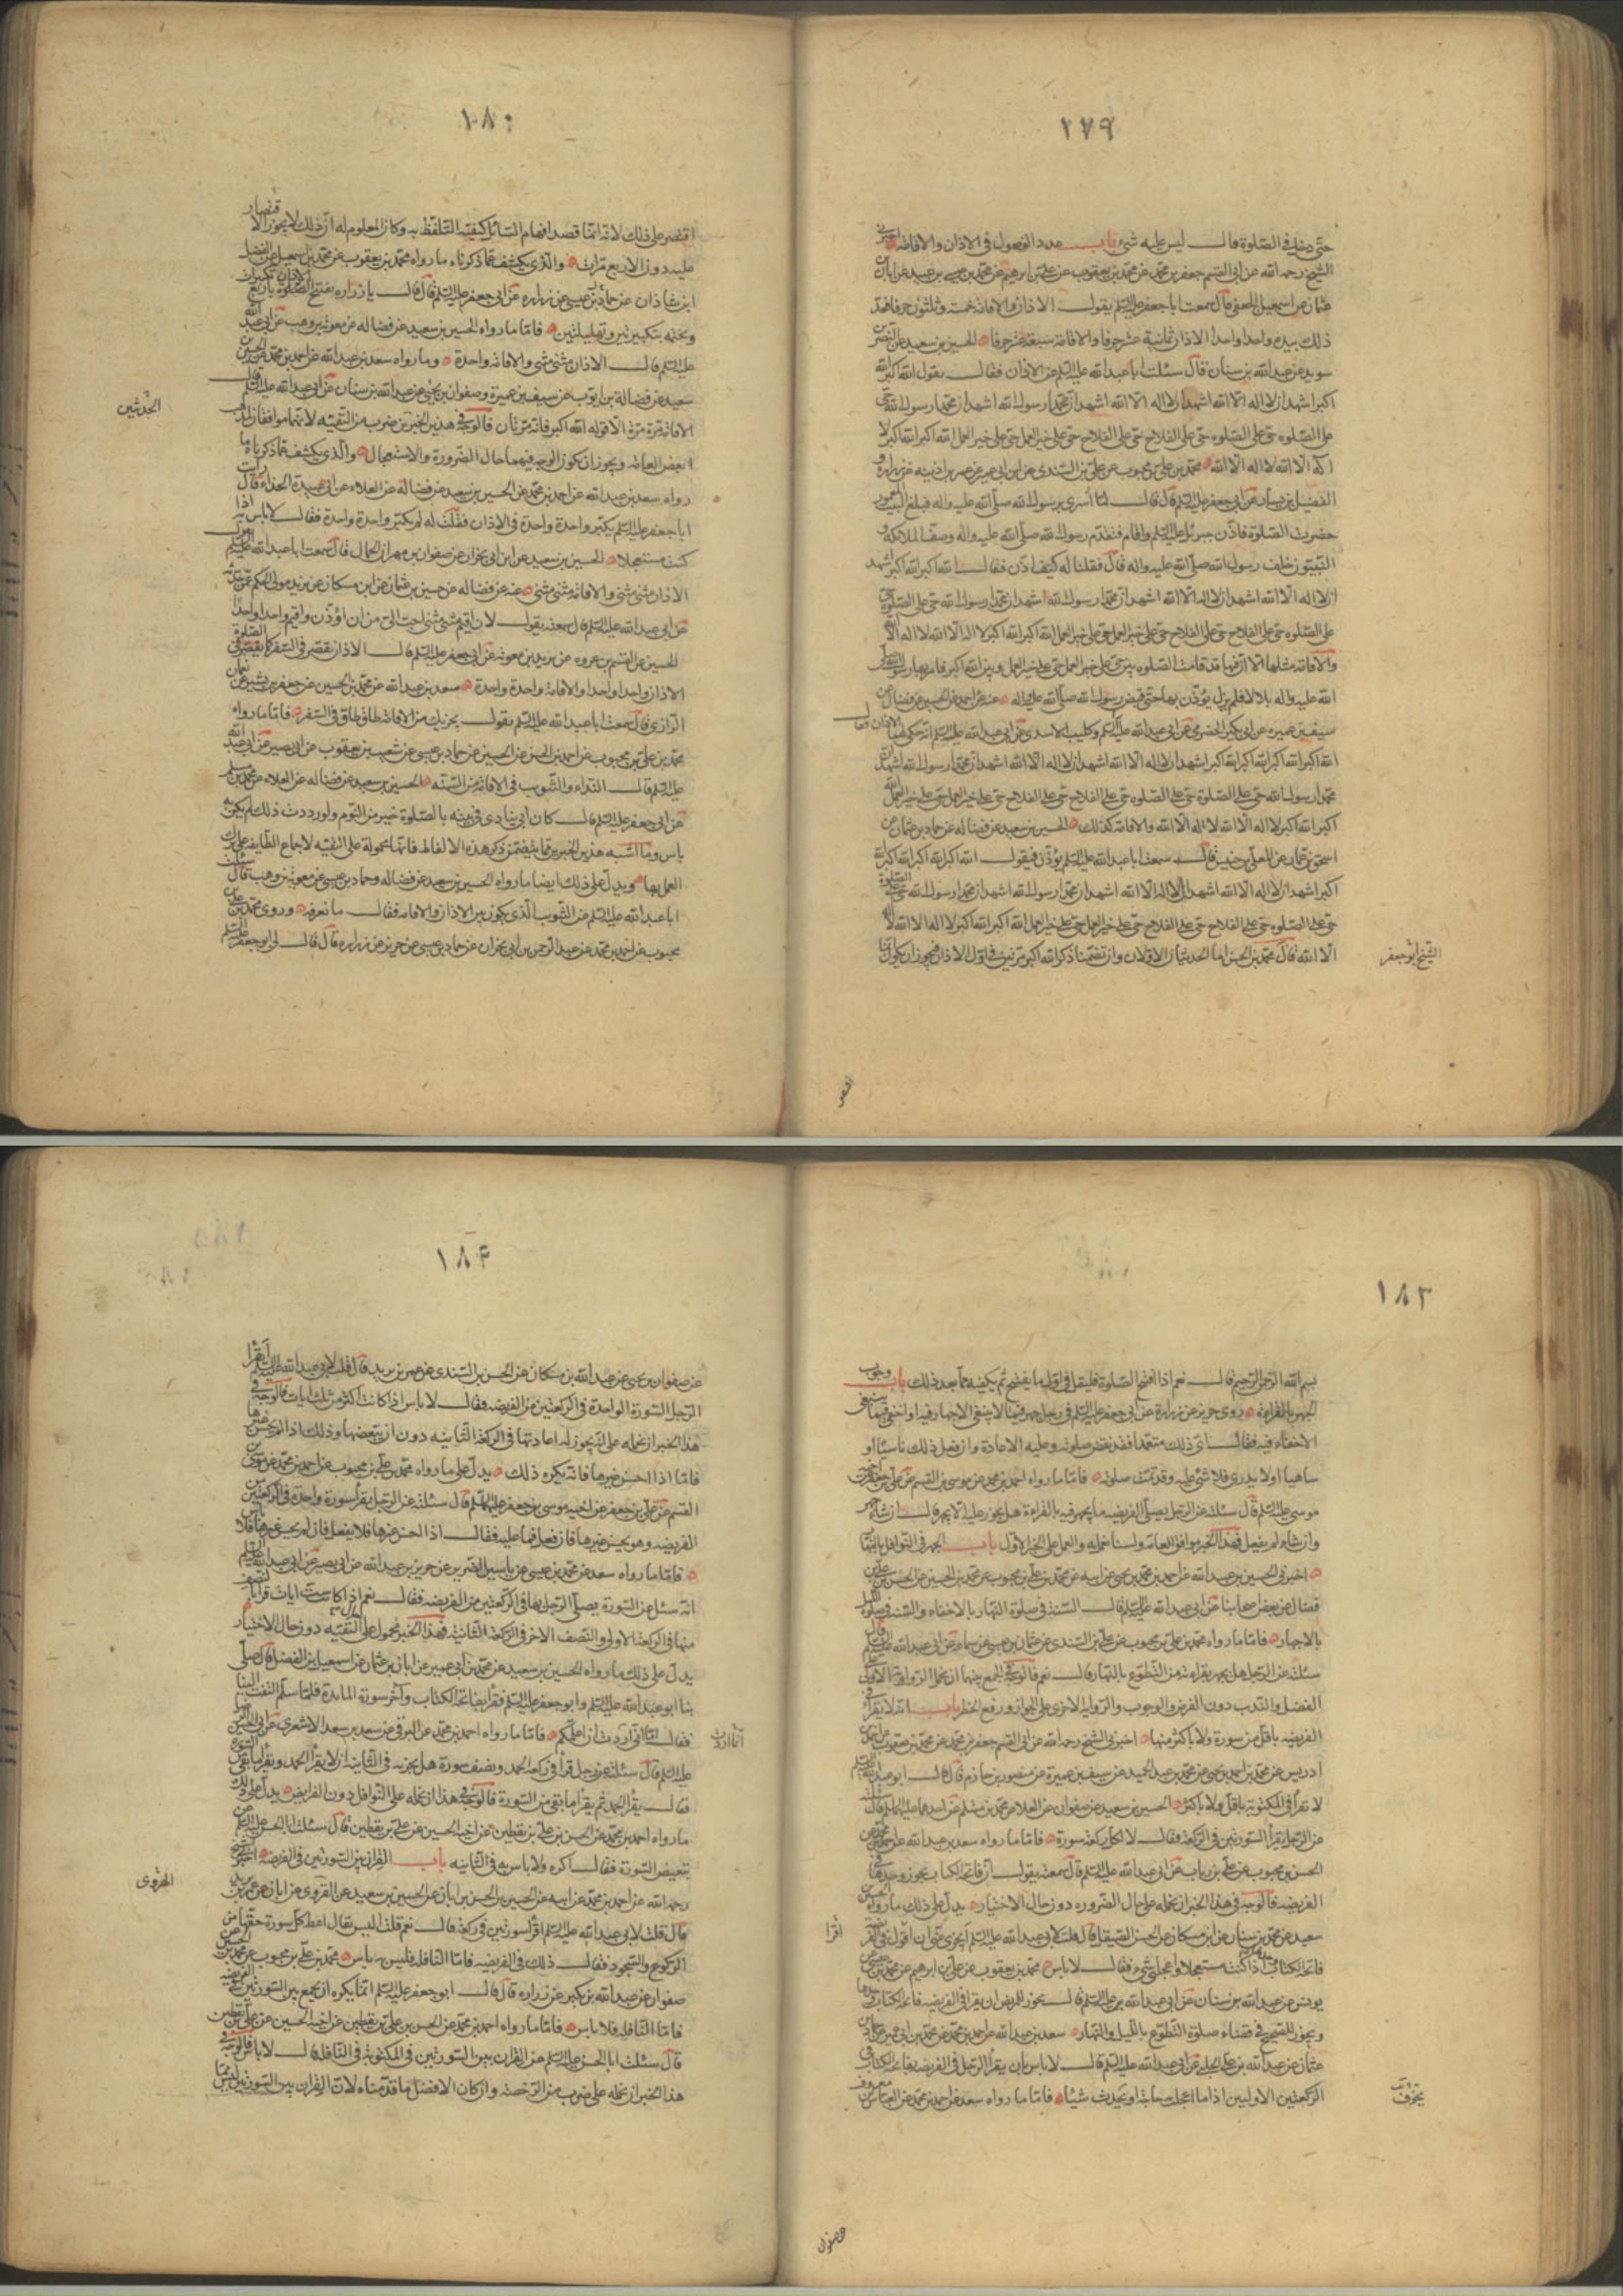 ١٧٩
حتى دخل في الصلوة قال ليس عليه شئ باب عدد الفصول في الاذان والاقامة اخبرني
الشيخ رحمه الله عن ابى القسم جعفر بن محمد عن محمد بن يعقوب عن على بن ابرهيم عن محمد بن عيسى بن عبيد عن ابان
عثمان عن اسمعيل الجعفي قال سمعت ابا جعفر عليه السلم يقول الاذان والاقامة خمسة وثلثون حرفا فعد
ذلك بيده واحدا واحدا الاذان ثمانية عشر حرفا والاقامة سبعة عشر حرفا الحسين بن سعيد عن النضر
سويد عن عبد الله بن سنان قال سئلت ابا عبد الله عليه السلم عن الاذان فقال يقول الله اكبر الله
اكبر اشهد ان لا اله الا الله اشهد ان لا اله الا الله اشهد ان محمدا رسول الله اشهد ان محمدا رسول الله حى
على الصلوه حى على الصلوه حى على الفلاح حى على الفلاح حى على خير العمل حى على خير العمل الله اكبر الله اكبر لا
اله الا الله لا اله الا الله محمد بن على بن محبوب عن على بن السندى عن ابن ابى عمير عن عمر بن اذينه عن زرارة و
الفضيل بن يسار عن ابى جعفر عليه السلم قال قال لما اسرى برسول الله صلى الله عليه واله فبلغ البيت المعمور
حضرت الصلوة فاذن جبرئل عليه السلم واقام فتقدم رسول الله صلى الله عليه واله وصف الملائكة و
النبيون خلف رسول الله صلى الله عليه واله قال فقلنا له كيف اذن فقال الله اكبر الله اكبر اشهد
ان لا اله الا الله اشهد ان لا اله الا الله اشهد ان محمدا رسول الله اشهد ان محمدا رسول الله حى على الصلوة حى
على الصلوه حى على الفلاح حى على الفلاح حى على خير العمل حى على خير العمل الله اكبر الله اكبر لا اله الا الله لا اله الا الله
والاقامة مثلها الا ان فيها قد قامت الصلوه بين حى على خير العمل حى على خير العمل وبين الله اكبر فامر بها رسول الله صلى
الله عليه واله بلالا فلم يزل يؤذن بها حتى قبض رسول الله صلى الله عليه اله عنه عن احمد عن الحسين عن فضالة عن
سيف بن عميره عن ابى بكر الحضرمى عن ابى عبد الله عليه السلم وكليب الاسدى عن ابى عبد الله عليه السلم انه حكى لهما الاذان فقال
الله اكبر الله اكبر الله اكبر الله اكبر اشهد ان لا اله الا الله اشهد ان لا اله الا الله اشهد ان محمدا رسول الله اشهد ان
محمدا رسول الله حى على الصلوة حى على الصلوه حى على الفلاح حى على الفلاح حى على خير العمل حى على خير العمل الله
اكبر الله اكبر لا اله الا الله لا اله الا الله والاقامة كذلك الحسين بن سعيد عن فضاله عن حماد بن عثمان عن
اسحق بن عمار عن المعلى بن خنيس قال سمعت ابا عبد الله عليه السلم يؤذن فيقول الله اكبر الله اكبر الله اكبر الله
اكبر اشهد ان لا اله الا الله اشهد ان لا اله الا الله اشهد ان محمدا رسول الله اشهد ان محمدا رسول الله حى على الصلوة
حى على الصلوه حى على الفلاح حى على الفلاح حى على خير العمل حى على خير العمل الله اكبر الله اكبر لا اله الا الله لا اله
الا الله قال محمد بن الحسن اما الحديثان الاولان وان تضمنا ذكر الله اكبر مرتين في اول الاذان فيجوز ان يكون انما
الشيخ ابو جعفر
اقتصر
١٨٠
اقتصر على ذلك لانه انما قصد افهام السائل كيفية التلفظ به وكان المعلوم له ان ذلك لا يجوز الاقتصار
عليه دون الاربع مرات والذى يكشف عما ذكرناه ما رواه محمد بن يعقوب عن محمد بن اسمعيل عن الفضل
ابن شاذان عن حماد بن عيسى عن زراره عن ابى جعفر عليه السلم قال قال يا زراره تفتتح الاذان باربع تكبيرات
وتختمه بتكبيرتين وتهليلتين فاما ما رواه الحسين بن سعيد عن فضاله عن معوية بن وهب عن ابى عبد الله
عليه السلم قال الاذان مثنى مثنى والاقامة واحدة وما رواه سعد بن عبد الله عن احمد بن محمد عن الحسين بن
سعيد عن فضالة بن ايوب عن سيف بن عميرة وصفوان بن يحيى عن عبد الله بن سنان عن ابى عبد الله عليه السلم قال
الاقامة مرة مرة الا قوله الله اكبر فانه مرتان فالوجه في هذين الخبرين ضرب من التقية لانهما موافقان لمذهب
بعض العامة ويجوز ان يكون الوجه فيهما حال الضرورة والاستعجال والذى يكشف عما ذكرناه ما
رواه سعد بن عبد الله عن احمد بن محمد عن الحسين بن سعيد عن فضاله عن العلاء عن ابى عبيدة الحذاء قال رايت
ابا جعفر عليه السلم يكبر واحدة واحدة في الاذان فقلت له لم تكبر واحدة واحدة فقال لا باس به اذا
كنت مستعجلا الحسين بن سعيد عن ابن ابى نجران عن صفوان بن مهران الجمال قال سمعت ابا عبد الله عليه السلم يقول
الاذان مثنى مثنى والاقامة مثنى مثنى عنه عن فضاله عن حسين بن عثمان عن ابن مسكان عن يزيد مولى الحكم عمن حدثه
عن ابى عبد الله عليه السلم قال سمعته يقول لان اقيم مثنى مثنى احب الى من ان اؤذن واقيم واحدا واحدا
الحسين عن القسم بن عروه عن بريد بن معوية عن ابى جعفر عليه السلم قال الاذان يقصر في السفر كما تقصر الصلوة
الاذان واحدا واحدا والاقامة واحدة واحدة سعد بن عبد الله عن محمد بن الحسين عن جعفر بن بشير عن نعمان
الرازى قال سمعت ابا عبد الله عليه السلم يقول يجزيك من الاقامة طاق طاق في السفر فاما ما رواه
محمد بن على بن محبوب عن احمد بن الحسن عن الحسين عن حماد بن عيسى عن شعيب بن يعقوب عن ابى بصير عن ابى عبد الله
عليه السلم قال النداء والتثويب في الاقامة من السنة الحسين بن سعيد عن فضاله عن العلاء عن محمد بن مسلم
عن ابى جعفر عليه السلم قال كان ابى ينادى في بيته بالصلوة خير من النوم ولو رددت ذلك لم يكن به
باس وما اشبه هذين الخبرين مما يتضمن ذكر هذه الالفاظ فانها محمولة على التقية لاجماع الطائفة على ترك
العمل بها ويدل على ذلك ايضا ما رواه الحسين بن سعيد عن فضاله وحماد بن عيسى عن معوية بن وهب قال سئلت
ابا عبد الله عليه السلم عن التثويب الذى يكون بين الاذان والاقامة فقال ما نعرفه وروى محمد بن على بن
محبوب عن احمد بن محمد عن عبد الرحمن بن ابى نجران عن حماد بن عيسى عن حريز عن زراره قال قال لى ابو جعفر عليه السلم
الحديثين
١٨٣
بسم الله الرحمن الرحيم قال نعم اذا افتتح الصلوة فليقل في اول ما يفتتح ثم يكفيه ما بعد ذلك باب وجوب
الجهر بالقراءة روى حريز عن زرارة عن ابى جعفر عليه السلم في رجل جهر فيما لا ينبغى الاجهار فيه او اخفى فيما ينبغى
الاخفاء فيه فقال اى ذلك متعمدا فقد نقض صلوته وعليه الاعادة وان فعل ذلك ناسيا او
ساهيا او لا يدرى فلا شئ عليه وقد تمت صلوته فاما ما رواه احمد بن محمد عن موسى بن القسم عن على بن جعفر عن اخيه
موسى عليه السلم قال سئلته عن الرجل يصلى الفريضه ما يجهر فيه بالقراءة هل يجوز عليه الا يجهر قال ان شاء جهر
وان شاء لم يفعل فهذا الخبر موافق للعامة ولسنا نعمل به والعمل على الخبر الاول باب الجهر في النوافل بالنهار
اخبرنى الحسين بن عبيد الله عن احمد بن محمد بن يحيى عن ابيه عن محمد بن على بن محبوب عن محمد بن الحسين عن الحسن بن على بن
فضال عن بعض اصحابنا عن ابى عبد الله عليه السلم قال السنة في صلوة النهار بالاخفاء والسنة في صلوة الليل
بالاجهار فاما ما رواه محمد بن على بن محبوب عن على بن السندى عن عثمان بن عيسى عن سماعة عن ابى عبد الله عليه السلم قال
سئلته عن الرجل هل يجهر بقراءته من التطوع بالنهار قال نعم فالوجه في الجمع بينهما ان نحمل الرواية الاولى على
الفضل والندب دون الفرض والوجوب والرواية الاخرى على الجواز ورفع الحظر باب انه لا يقرا في
الفريضه باقل من سورة ولا باكثر منها اخبرنى الشيخ رحمه الله عن ابى القسم جعفر بن محمد عن محمد بن يعقوب عن احمد بن
ادريس عن محمد بن احمد بن يحيى عن محمد بن عبد الحميد عن سيف بن عميرة عن منصور بن حازم قال قال ابو عبد الله عليه السلم
لا تقرأ في المكتوبة باقل ولا باكثر الحسين بن سعيد عن صفوان عن العلاء عن محمد بن مسلم عن احدهما عليهما السلم قال سئلته
عن الرجل يقرأ السورتين في الركعة فقال لا لكل ركعة سورة فاما ما رواه سعد بن عبد الله عن احمد بن محمد عن
الحسن بن محبوب عن على بن رياب عن ابى عبد الله عليه السلم قال سمعته يقول ان فاتحة الكتاب تجوز وحدها في
الفريضه فالوجه في هذا الخبر ان نحمله على حال الضروره دون حال الاختيار يدل على ذلك ما رواه الحسين بن
سعيد عن محمد بن سنان عن ابن مسكان عن الحسن الصيقل قال قلت لابى عبد الله عليه السلم ايجزى عنى ان اقول في الفريضة
فاتحة الكتاب وحدها اذا كنت مستعجلا او اعجلنى شئ فقال لا باس محمد بن يعقوب عن على بن ابرهيم عن محمد بن عيسى عن
يونس عن عبد الله بن سنان عن ابى عبد الله عليه السلم قال يجوز للمريض ان يقرا في الفريضه فاتحة الكتاب وحدها
ويجوز للصحيح في قضاء صلوة التطوع بالليل والنهار سعد بن عبد الله عن احمد بن محمد عن محمد بن ابى عمير عن حماد بن
عثمان عن عبد الله بن على الحلبى عن ابى عبد الله عليه السلم قال لا باس بان يقرا الرجل في الفريضه بفاتحة الكتاب في
الركعتين الاوليين اذا ما اعجلت به حاجة او يحدث شيئا فاما ما رواه سعد عن احمد بن محمد عن العباس بن معروف
اقرا
تخوف
عن صفوان
١٨۴
عن صفوان بن يحيى عن عبد الله بن مسكان عن الحسن بن السندى عن عمر بن يزيد قال قلت لابى عبد الله عليه السلم ايقرا
الرجل السورة الواحدة في الركعتين من الفريضه فقال لا باس اذا كانت اكثر من ثلث ايات فالوجه في
هذا الخبر ان نحمله على انه يجوز له اعادتها في الركعة الثانيه دون ان يبعضها وذلك اذا لم يحسن غيرها
فاما اذا احسن غيرها فانه يكره ذلك يدل على ما رواه محمد بن على بن محبوب عن احمد بن محمد عن موسى بن
القسم عن على بن جعفر عن اخيه موسى بن جعفر عليهما السلم قال سئلته عن الرجل يقرأ سورة واحدة في الركعتين من
الفريضه وهو يحسن غيرها فان فعل فما عليه فقال اذا احسن غيرها فلا يفعل فان لم يحسن غيرها فلا باس
فاما ما رواه سعد عن محمد بن عيسى عن ياسين الضرير عن حريز بن عبد الله عن ابى بصير عن ابى عبد الله عليه السلم
انه سئل عن السورة يصلى الرجل بها في الركعتين من الفريضه فقال نعم اذا كانت ست ايات قرأ بالنصف
منها في الركعة الاولى والنصف الاخر في الركعة الثانية فهذا الخبر محمول على التقيه دون حال الاختيار
يدل على ذلك ما رواه الحسين بن سعيد عن محمد بن ابى عمير عن ابان بن عثمان عن اسمعيل بن الفضل قال صلى
بنا ابو عبد الله عليه السلم او ابو جعفر عليه السلم فقرأ بفاتحة الكتاب وآخر سورة المائدة فلما سلم التفت الينا
فقال اما انى اردت ان اعلمكم فاما ما رواه احمد بن محمد عن البرقى عن سعد بن سعد الاشعرى عن ابى الحسن الرضا
عليه السلم قال سئلته عن رجل قرأ في ركعة الحمد ونصف سورة هل يجزيه في الثانية ان لا يقرأ الحمد ويقرأ ما بقى من السورة
فقال يقرأ الحمد ثم يقرأ ما بقى من السورة فالوجه في هذا ان نحمله على النوافل دون الفرايض يدل على ذلك
ما رواه احمد بن محمد عن الحسن بن على بن يقطين عن اخيه الحسين عن على بن يقطين قال سئلت ابا الحسن عليه السلم عن
تبعيض السورة فقال اكره ولا باس به في الثانيه باب القران بين السورتين في الفريضه اخبرنى الشيخ
رحمه الله عن احمد بن محمد عن ابيه عن الحسين بن الحسن بن ابان عن الحسين بن سعيد عن القروى عن ابان عن عمر بن يزيد
قال قلت لابى عبد الله عليه السلم اقرأ سورتين في ركعة قال نعم قلت اليس يقال اعط كل سورة حقها من
الركوع والسجود فقال ذلك في الفريضه فاما النافله فليس به باس محمد بن على بن محبوب عن محمد بن الحسين عن
صفوان عن عبد الله بن بكير عن زراره قال قال ابو جعفر عليه السلم انما يكره ان يجمع بين السورتين في الفريضه
فاما النافله فلا باس فاما ما رواه احمد بن محمد عن الحسن بن على بن يقطين عن اخيه الحسين عن على بن يقطين
قال سئلت ابا الحسن عليه السلم عن القران بين السورتين في المكتوبة والنافلة قال لا باس فالوجه في
هذا الخبر ان نحمله على ضرب من الرخصة وان كان الافضل ما قدمناه لان القران بين السورتين ليس مما
الهروى